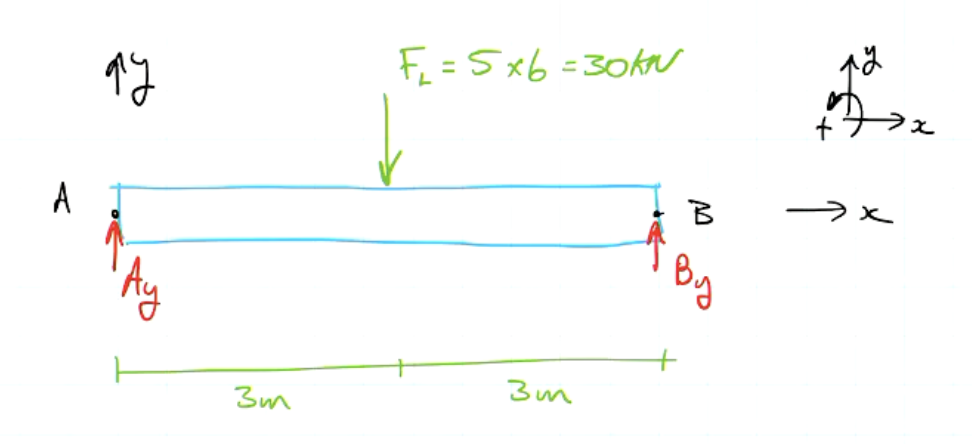 y
F_L = 5 × 6 = 30kN
y
+
x
A
B
x
Ay
By
3m
3m